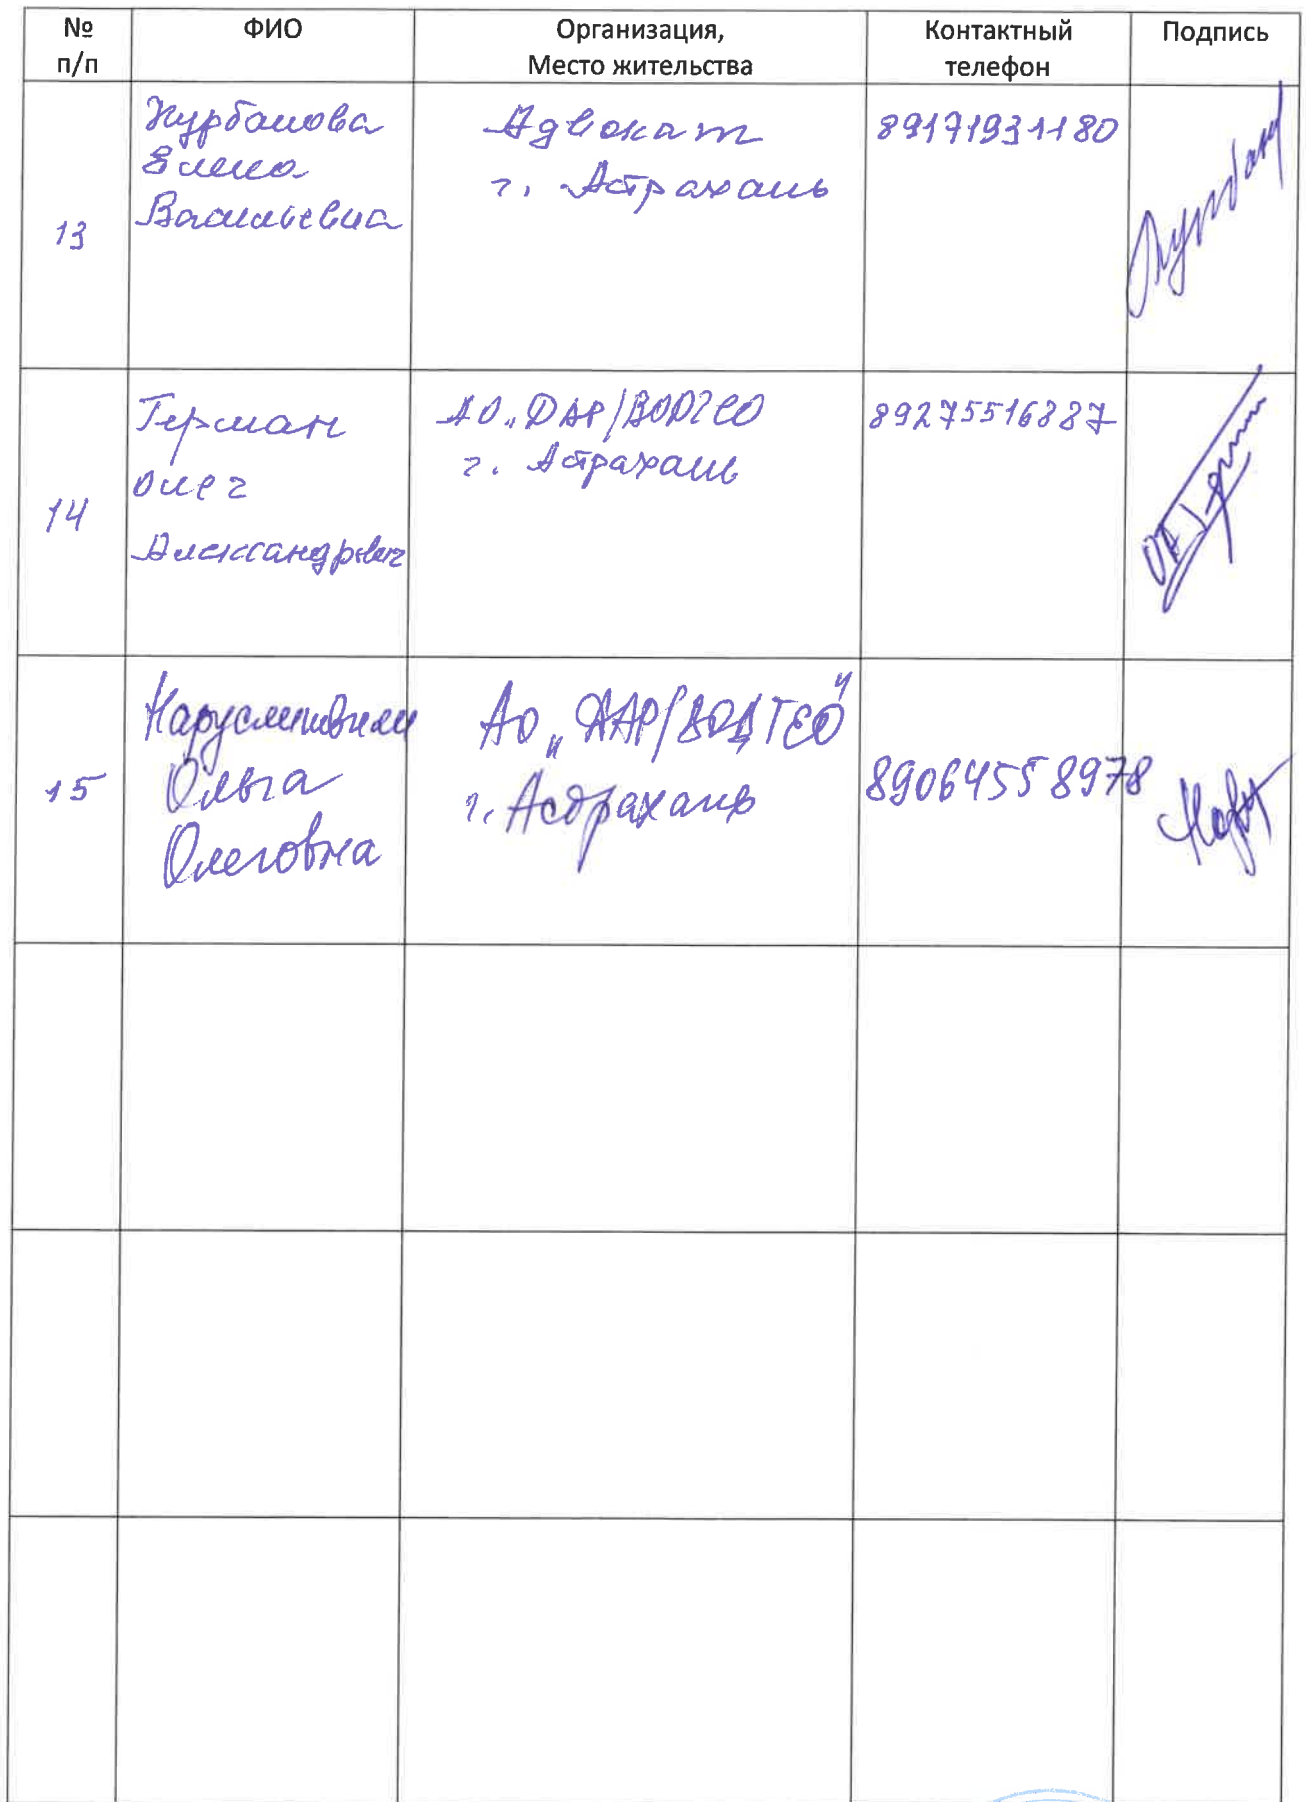 № п/п
ФИО
Организация,
Место жительства
Контактный
телефон
Подпись
13
Курбанова
Елена
Васильевна
Адвокат
г. Астрахань
89171931180
14
Герман
Олег
Александрович
АО „ДАР/ВОДГЕО
г. Астрахань
89275516887
15
Ольга
Олеговна
АО „ДАР/ВОДГЕО"
г. Астрахань
89064558978